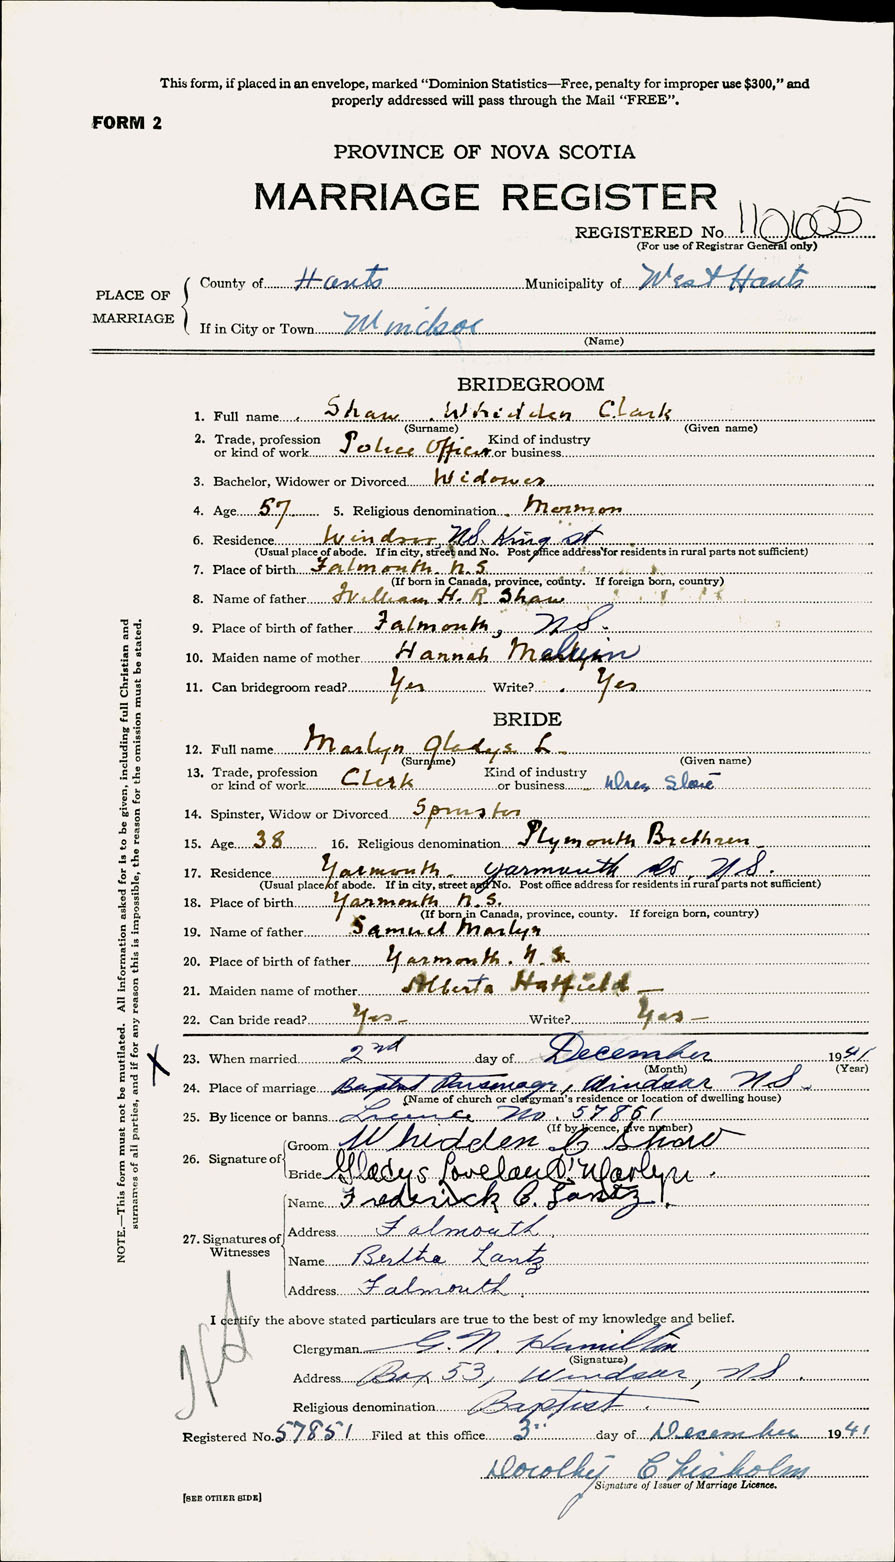 This form, if placed in an envelope, marked "Dominion Statistics—Free, penalty for improper use $300," and
properly addressed will pass through the Mail "FREE".
FORM 2
PROVINCE OF NOVA SCOTIA
MARRIAGE REGISTER
REGISTERED No.
(For use of Registrar General only)
PLACE OF MARRIAGE
County of Hants Municipality of West Hants
If in City or Town Windsor
(Name)
BRIDEGROOM
1. Full name Shaw Whidden Clark
(Surname) (Given name)
2. Trade, profession or kind of work Police Officer Kind of industry or business
3. Bachelor, Widower or Divorced Widower
4. Age 57 5. Religious denomination Mormon
6. Residence Windsor, N.S. King st
(Usual place of abode. If in city, street and No. Post office address for residents in rural parts not sufficient)
7. Place of birth Falmouth N.S.
(If born in Canada, province, county. If foreign born, country)
8. Name of father William H. R Shaw
9. Place of birth of father Falmouth, N.S.
10. Maiden name of mother Hannah
11. Can bridegroom read? Yes Write? Yes
BRIDE
12. Full name Marlyn Gladys L.
(Surname) (Given name)
13. Trade, profession or kind of work Clerk Kind of industry or business Dress Store
14. Spinster, Widow or Divorced Spinster
15. Age 38 16. Religious denomination Plymouth Brethren
17. Residence Yarmouth Yarmouth Co, N.S.
(Usual place of abode. If in city, street and No. Post office address for residents in rural parts not sufficient)
18. Place of birth Yarmouth N.S.
(If born in Canada, province, county. If foreign born, country)
19. Name of father Samuel Marlyn
20. Place of birth of father Yarmouth. N.S.
21. Maiden name of mother Alberta Hatfield
22. Can bride read? Yes Write? Yes
23. When married 2nd day of December 1941
(Month) (Year)
24. Place of marriage Baptist Parsonage, Windsor N.S.
(Name of church or clergyman's residence or location of dwelling house)
25. By licence or banns Licence No. 57851
(If by licence, give number)
26. Signature of
Groom Whidden C Shaw
Bride Gladys Loveland Marlyn
27. Signatures of Witnesses
Name Frederick C. Lantz
Address Falmouth
Name Bertha Lantz
Address Falmouth
I certify the above stated particulars are true to the best of my knowledge and belief.
Clergyman G. N. Hamilton
(Signature)
Address Box 53, Windsor, N.S.
Religious denomination Baptist
Registered No. 57851 Filed at this office 3" day of December 1941
Dorothy Chisholm
Signature of Issuer of Marriage Licence.
[SEE OTHER SIDE]
NOTE.—This form must not be mutilated. All information asked for is to be given, including full Christian and
surnames of all parties, and if for any reason this is impossible, the reason for the omission must be stated.
X